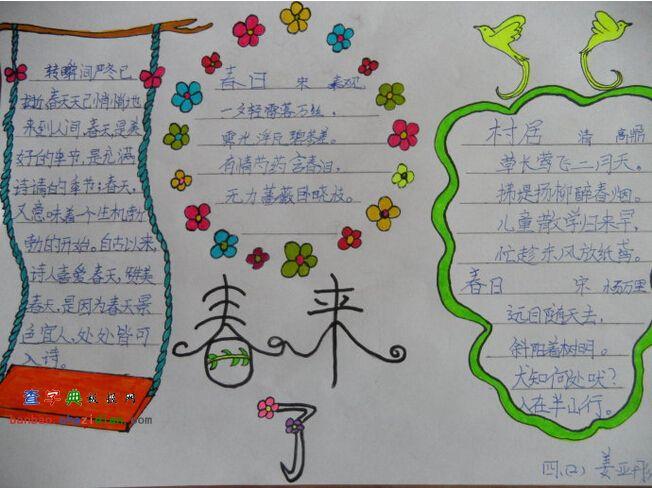 转瞬间严冬已
春天已悄悄地
来到人间,春天是美
好的季节,是充满
诗情的季节;春天,
又意味着一个生机勃
勃的开始。自古以来
诗人喜爱春天,赞美
春天,是因为春天景
色宜人,处处皆可
入诗。
春日 宋 秦观
一夕轻雷落万丝,
霁光浮瓦碧参差。
有情芍药含春泪,
无力蔷薇卧晓枝。
春来
了
村居 清 高鼎
草长莺飞二月天。
拂堤杨柳醉春烟。
儿童散学归来早,
忙趁东风放纸鸢。
春日 宋 杨万里
远目随天去,
斜阳着树明。
犬知何处吠?
人在半山行。
四.(2) 姜亚
查字典